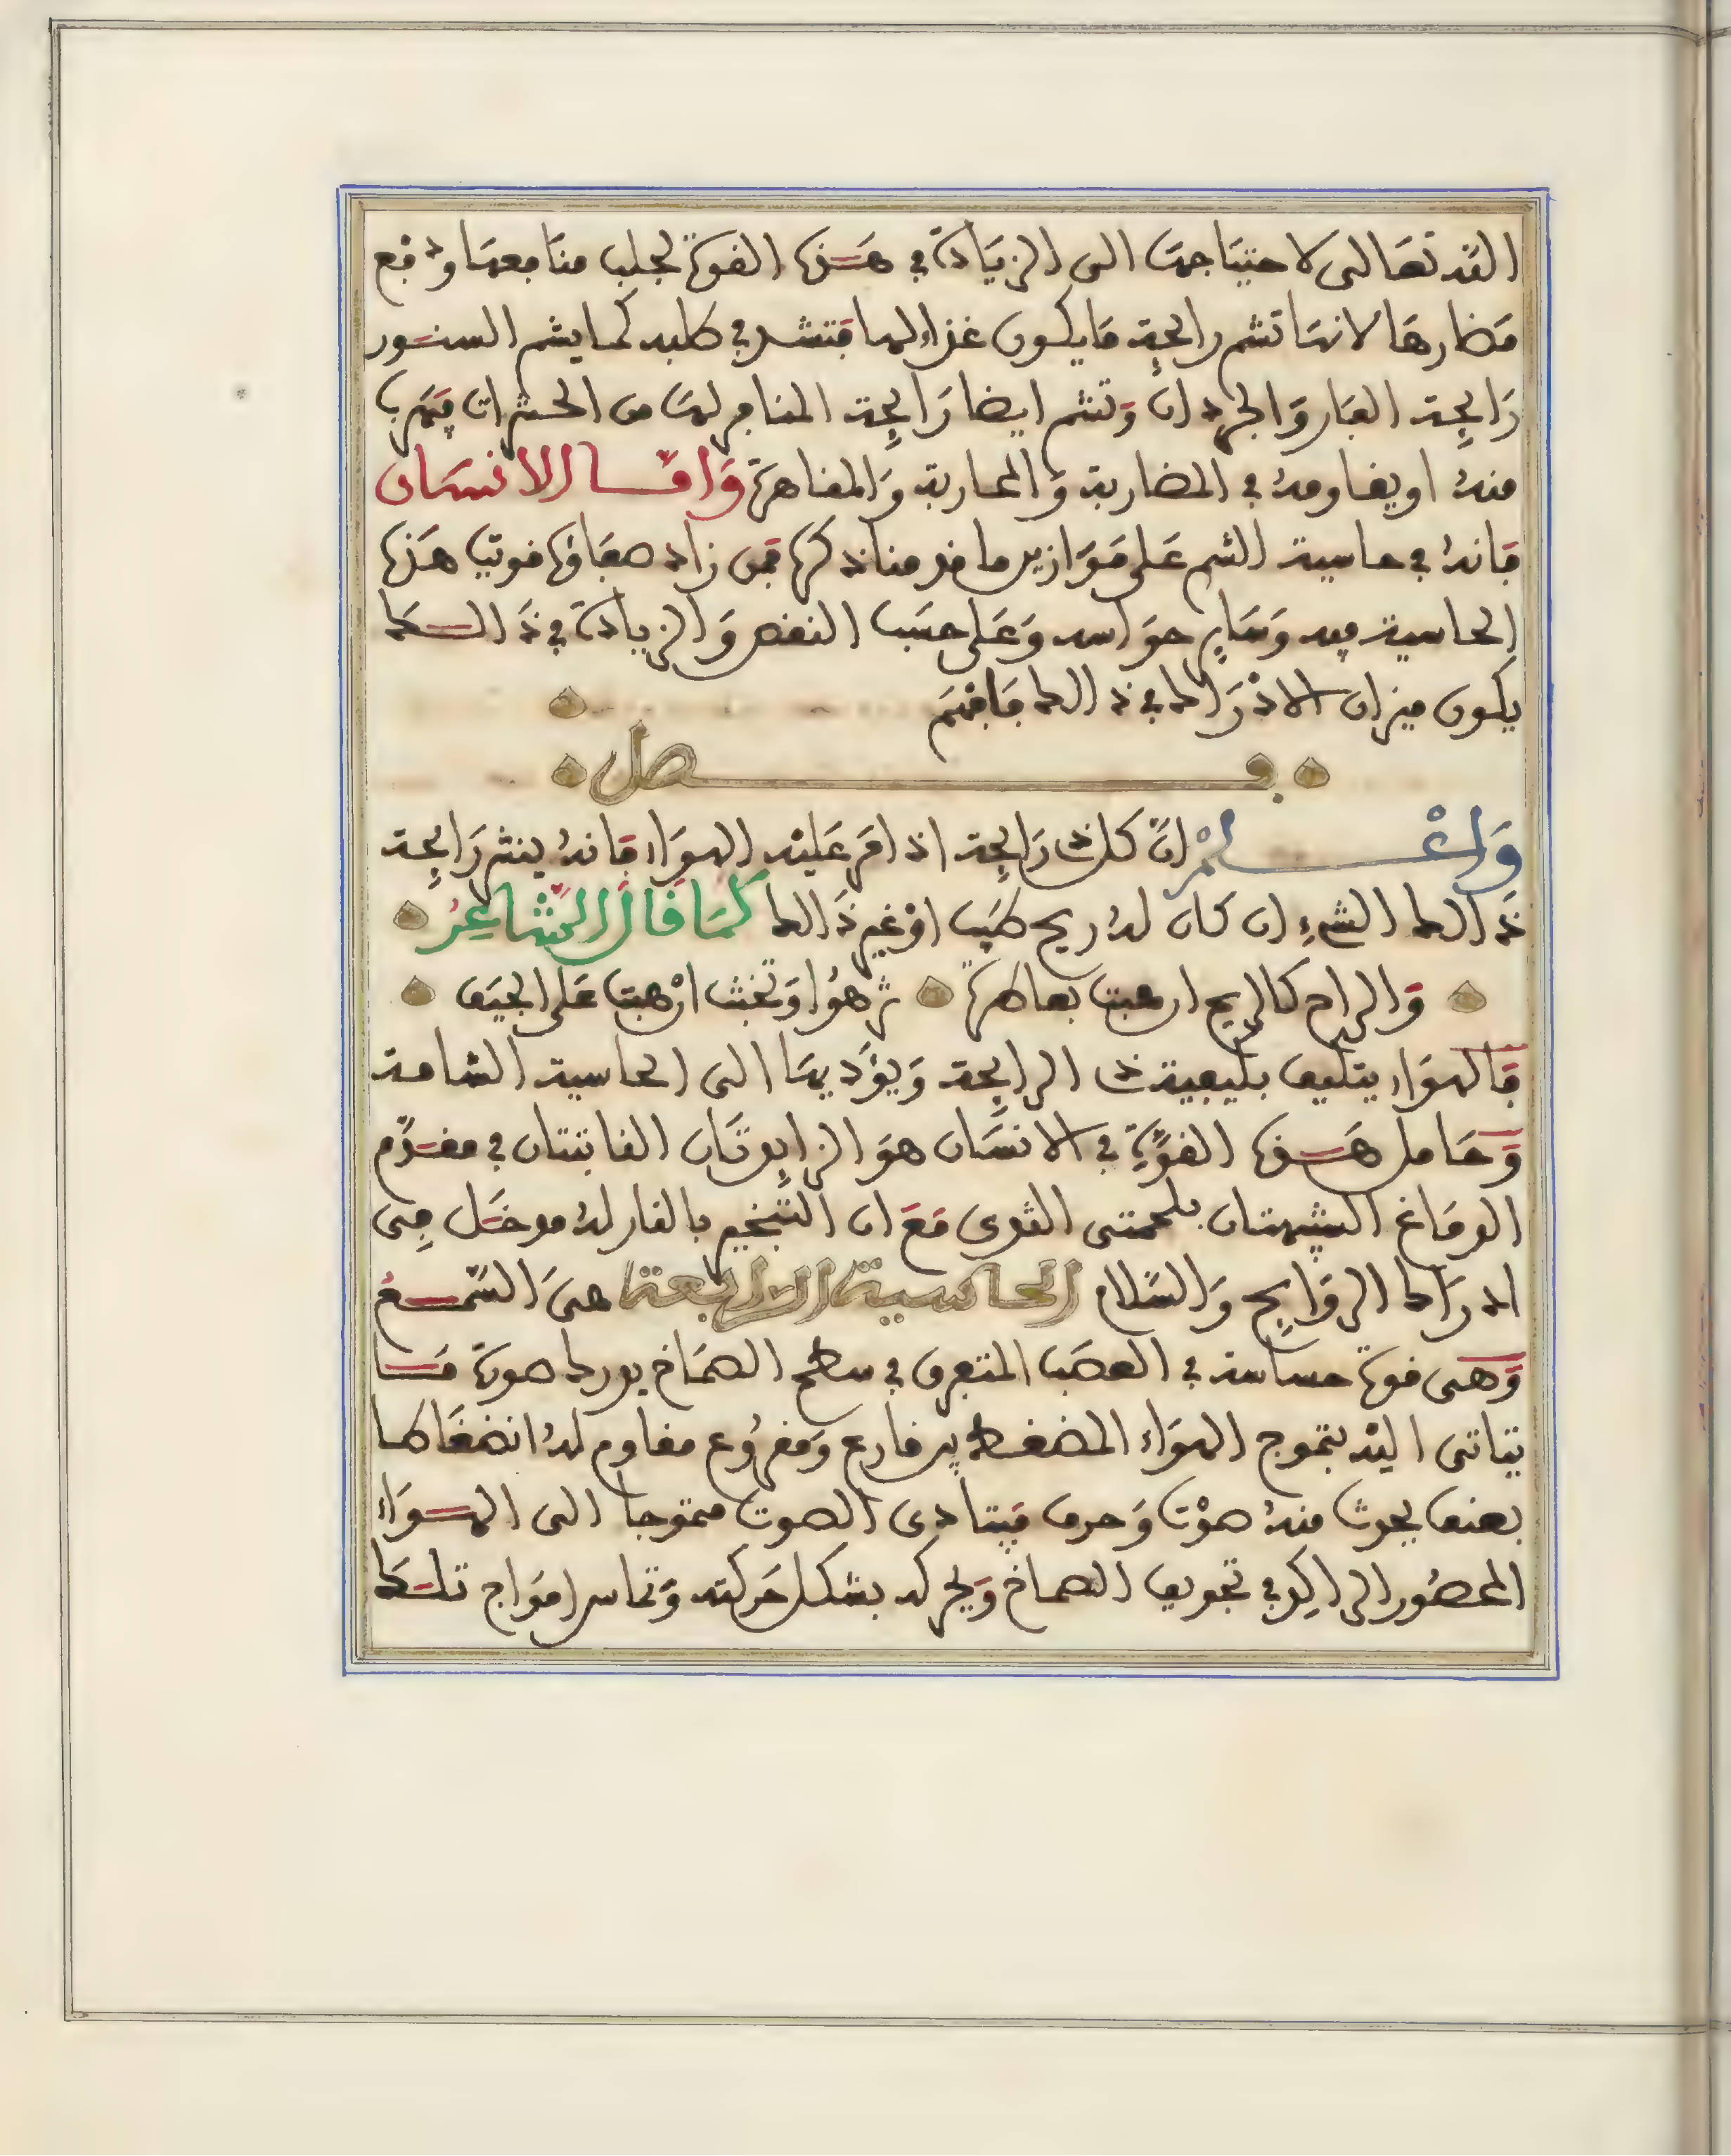 الله تعالى لاحتياجها الى الزيادة في هذه القوة لجلب منافعها ودفع
مضارها لانها تشم رايحة ما يكون غذاء لها فتنشر في طلبه كما يشم السنور
رايحة الفار والجرذان وتشم ايضا رايحة المنافر لها من الحشرات فيهرب
منه او يقاومه في المضاربة والمحاربة والمقاهرة واما الانسان
فانه في حاسية الشم على موازين ما قدمنا ذكره فمن زاد صفاؤه قويت هذه
الحاسية فيه وساير حواسه وعلى حسب النقص والزيادة في ذالك
يكون ميزان الادراك في ذالك فافهم
فصل
واعلم ان كل رايحة اذا مر عليه الهواء فانه ينشر رايحة
ذالك الشيء ان كان له ريح طيب او غير ذالك كما قال الشاعر
والراح كالريح ان هبت بعاطرة تزهوا وتخبث ان هبت على الجيف
فالهواء يتكيف بكيفية الرايحة ويؤديها الى الحاسية الشامة
وحامل هذه القوة في الانسان هو الزايدتان الناتتتان في مقدم
الدماغ الشبيهتان بحلمتي الثدي مع ان التبخير بالنار له مدخل في
ادراك الروايح والسلام الحاسية الرابعة هي السمع
وهي قوة حساسة في العصب المتفرق في سطح الصماخ يدرك صورة ما
يتاتى اليه بتموج الهواء المضغط بين قارع ومقروع مقاوم له انضغاطا
بعنف يحدث منه صوت وحرف فيتادى الصوت متموجا الى الهواء
المحصور الراكد في تجويف الصماخ ويحركه بشكل حركته وتماس امواج تلك